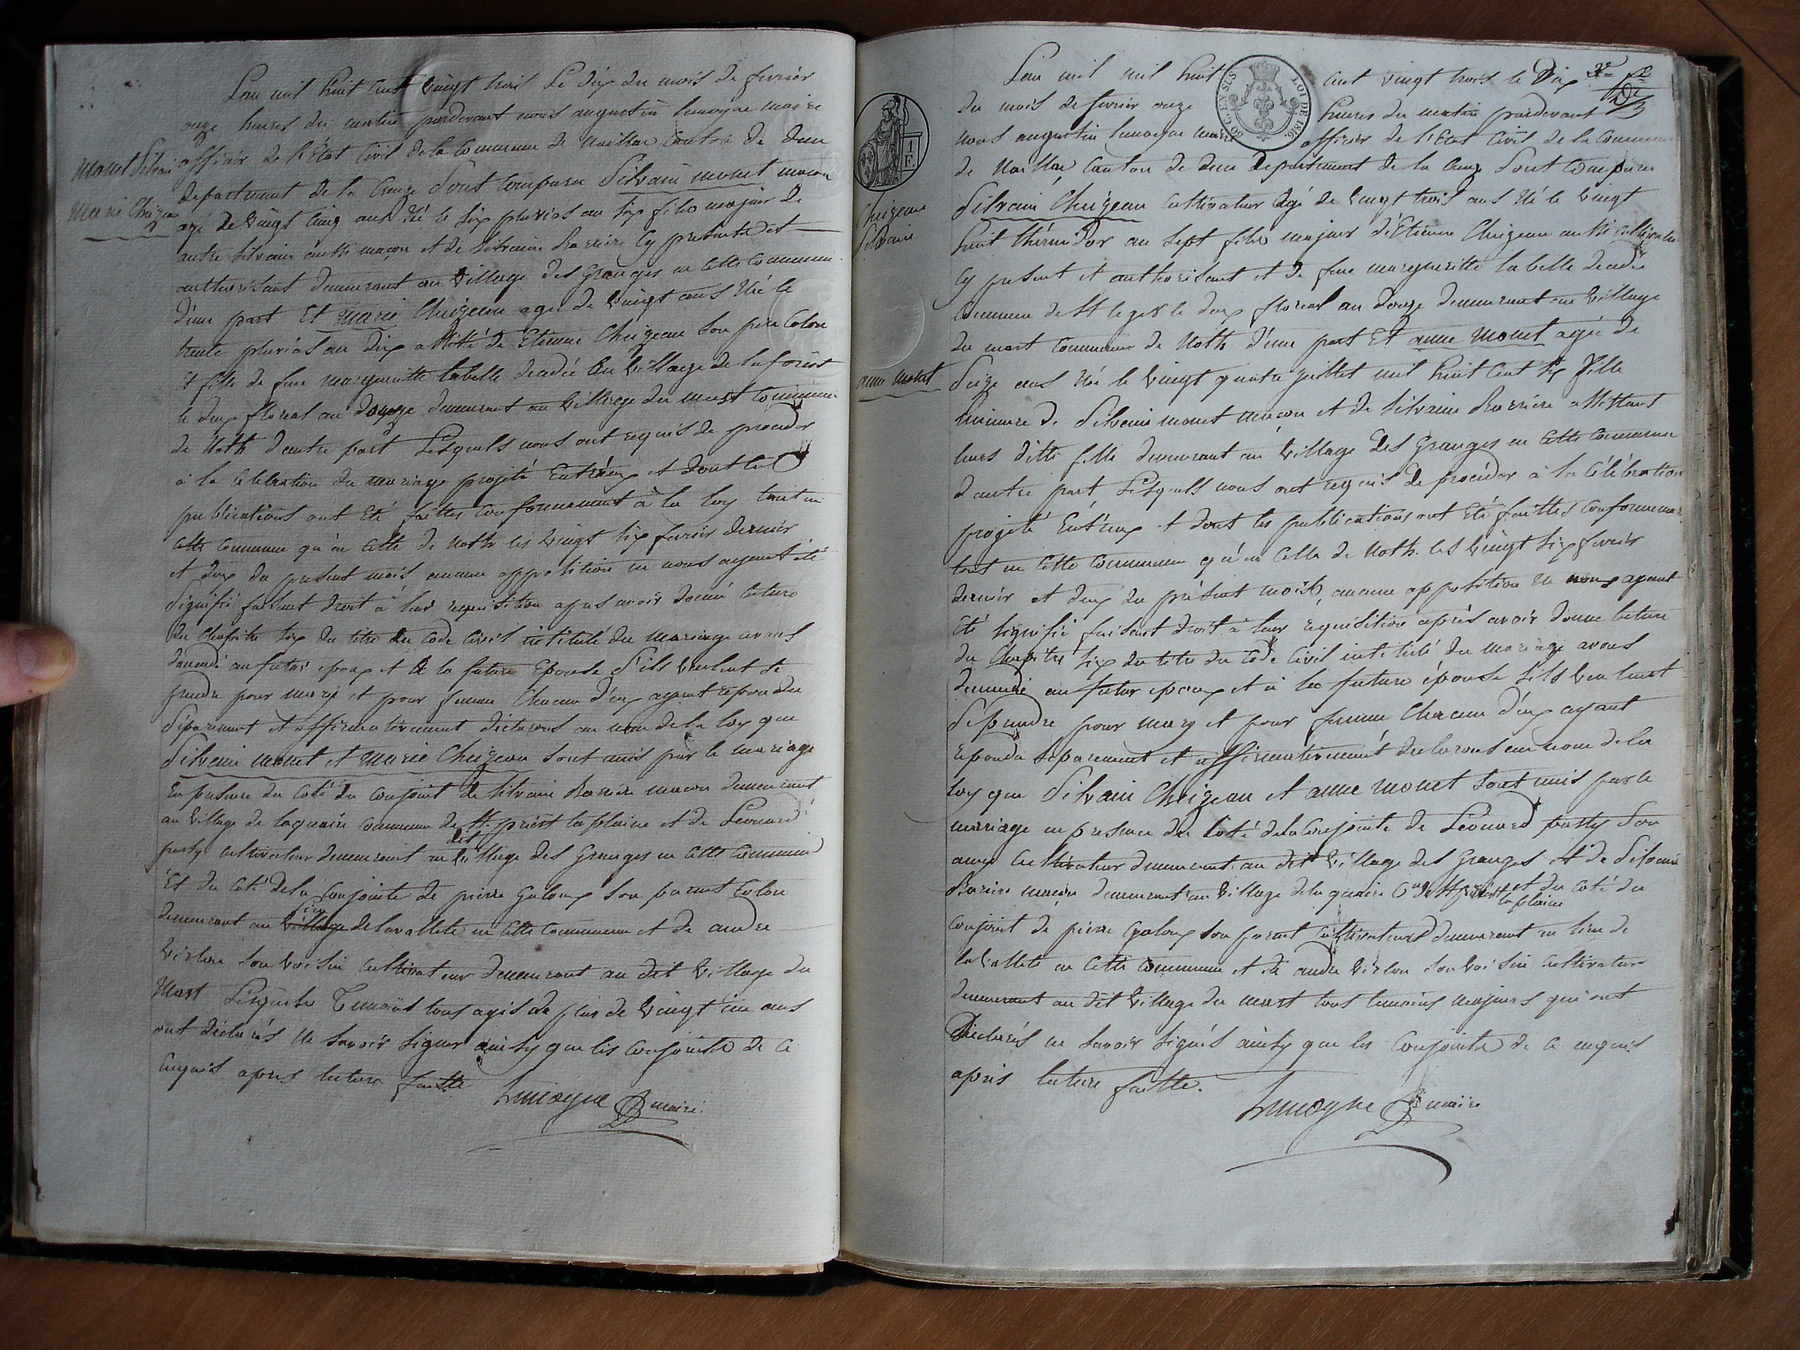 Monet Silvain
Marie Chuizeau
L'an mil huit cent vingt trois le dix du mois de fevrier
onze heures du matin pardevant nous augustin lemoyne maire
officier de l'état Civil de la Commune de Noillac Canton de dun
departement de la Creuze Sont Comparu Silvain monet macon
agé de Vingt Cinq ans Né le six pluvios an six fils majeur de
autre Silvain aussi maçon et de Silvaine Barriere cy presents et
authorisant demeurant au Village des Granges en Cette Commune
d'une part Et Marie Chuizeau agée de Vingt ans Née le
trente pluvios an dix assisté de Etienne Chuizeau Son pere Colon
et fille de feue margueritte labelle decedée au Village de la forest
le deux floreal an douze demeurant au Village du mast Commune
de Noth d'autre part Lesquels nous ont requis de proceder
à la Celebration du mariage projeté Entr'eux et dont les
publications ont Eté faittes Conformement à la loy tant en
Cette Commune qu'en Celle de Noth les Vingt six fevrier dernier
et deux du present mois aucune opposition ne nous ayant été
Signifié faisant droit à leur requisition apres avoir donné lecture
du Chapitre six du titre du Code Civil intitulé du Mariage avons
demandé au futur epoux et à la future Epouse S'ils Veulent se
prendre pour mary et pour femme Chacun d'eux ayant repondu
Séparement et affirmativement declarons au nom de la loy que
Silvain monet et Marie Chuizeau Sont unis par le mariage
En presence du Coté du Conjoint de Silvain Barriere macon demeurant
au Village de laquaire Commune de St priest laplaine et de Leonard
passy Cultivateur demeurant au dit Village des Granges en Cette Commune
Et du Coté de la Conjointe de pierre Galoux Son parent Colon
demeurant au lieu Village de lavallete en Cette Commune et de andre
Virlou Son Voisin Cultivateur demeurant au dit Village du
Mast Lesquels Temoins tous agés de plus de Vingt un ans
ont declarés Ne Savoir Signer ainsy que les Conjoints de Ce
enquis apres lecture faitte Lemoyne maire
Chuizeau
Silvain
anne monet
1 F.
50 C. EN SUS
LOI DE 1816.
L'an mil mil huit cent vingt trois le Dix
du mois de fevrier onze heures du matin pardevant
nous augustin lemoyne maire officier de l'Etat Civil de la Commune
de Noillac Canton de dun Departement de la Creuze Sont Comparu
Silvain Chuizeau Cultivateur agé de Vingt trois ans Né le Vingt
huit thermidor an sept fils majeur d'Etienne Chuizeau aussi cultivateur
Cy present et authorisant et de feue marguerite labelle decedée
Commune de St leger le deux floreal an douze demeurant au Village
du mast Commune de Noth d'une part Et anne Monet agée de
Seize ans Née le Vingt quatre juillet mil huit Cent six Fille
mineure de Silvain monet macon et de Silvaine Barriere assistant
leurs ditte fille demeurant au Village des Granges en Cette Commune
d'autre part Lesquels nous ont requis de procéder à la Célébration
projeté Entr'eux et dont les publications ont été faittes conformement
tant en Cette Commune qu'en Celle de Noth les Vingt six fevrier
dernier et deux du présent mois, aucune opposition ne nous ayant
Eté signifié faisant droit à leur requisition après avoir donné lecture
du Chapitre six du titre du Code Civil intitulé du Mariage avons
demandé au futur epoux et à la future épouse s'ils Veulent
Se prendre pour mary et pour femme Chacun d'eux ayant
repondu séparement et affirmativement declarons au nom de la
loy que Silvain Chuizeau et anne monet Sont unis par le
mariage en presence du Coté de la Conjointe de Leonard passy Son
amy Cultivateur demeurant au dit Village des Granges et de Silvain
Bariere macon demeurant au Village de laquaire Cne de St priest laplaine et du Coté du
Conjoint de pierre Galoux Son parent Cultivateur demeurant au lieu de
la Vallete en Cette Commune et de andre Virlou Son Voisin Cultivateur
demeurant au dit Village du mast tous temoins majeurs qui ont
Declarés ne Savoir Signés ainsy que les Conjoints de Ce enquis
après lecture faitte. Lemoyne maire